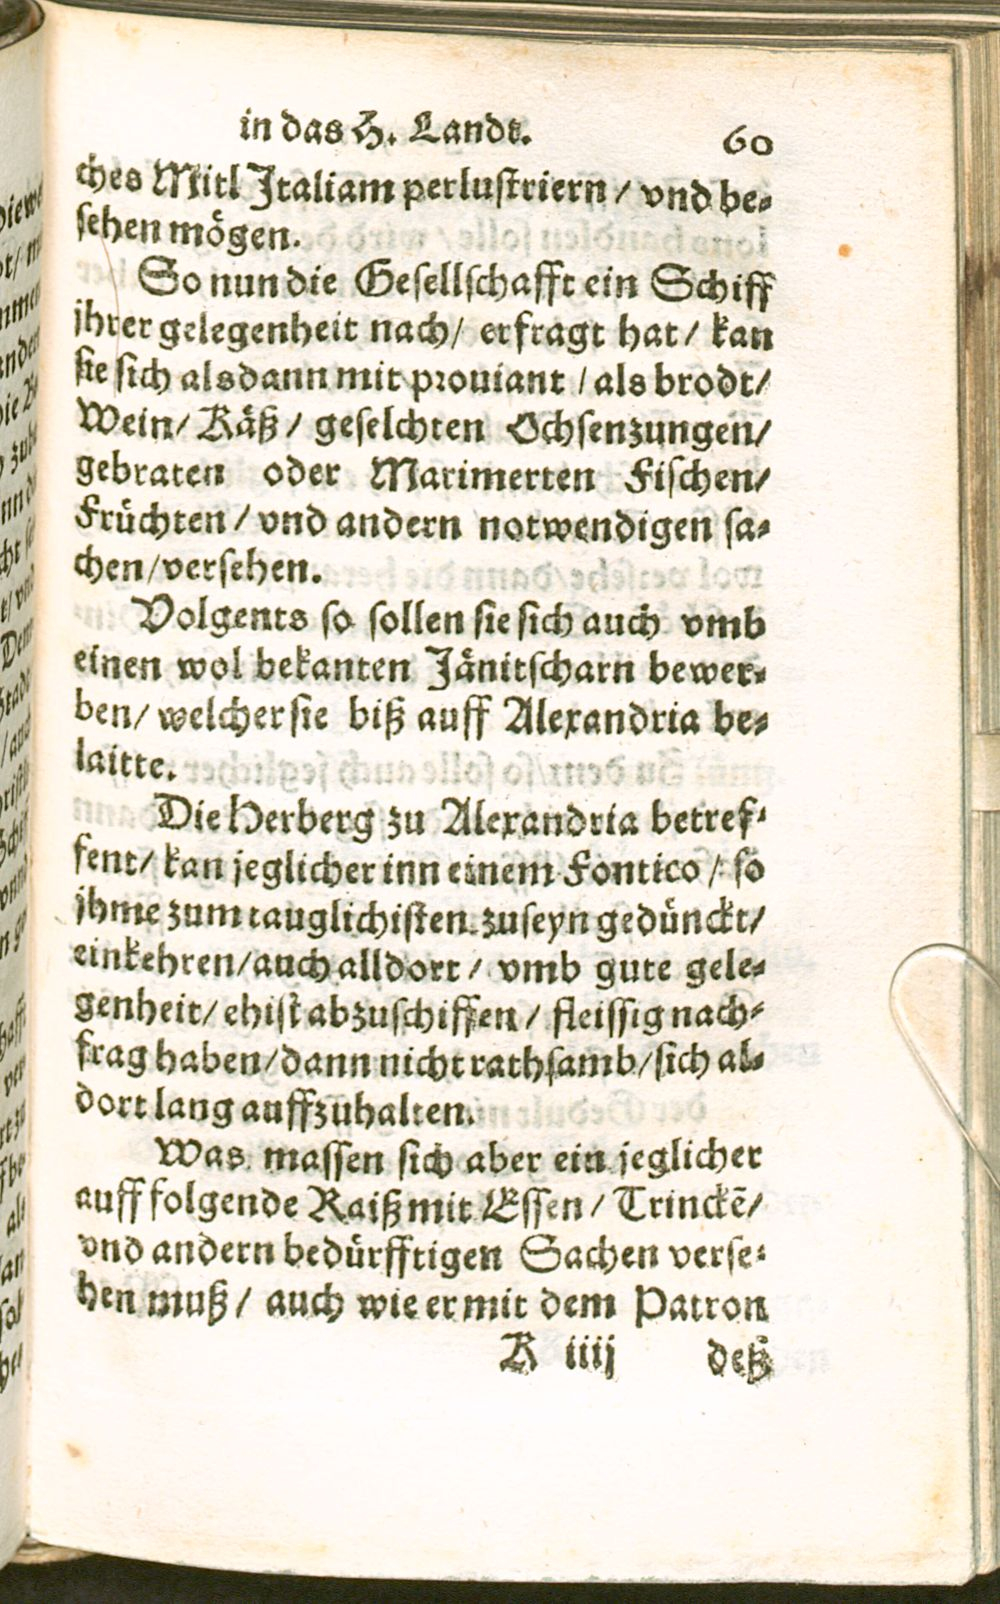 in das H. Landt.
60
ches Mitl Italiam perlustriern / vnd be⸗
sehen mögen.
So nun die Gesellschafft ein Schiff
jhrer gelegenheit nach / erfragt hat / kan
sie sich alsdann mit prouiant / als brodt /
Wein / Käß / geselchten Ochsenzungen /
gebraten oder Marimerten Fischen /
Früchten / vnd andern notwendigen sa⸗
chen / versehen.
Volgents so sollen sie sich auch vmb
einen wol bekanten Jänitscharn bewer⸗
ben / welcher sie biß auff Alexandria be⸗
laitte.
Die Herberg zu Alexandria betref⸗
fent / kan jeglicher inn einem Fontico / so
jhme zum tauglichisten zuseyn gedünckt /
einkehren / auch alldort / vmb gute gele⸗
genheit / ehist abzuschiffen / fleissig nach⸗
frag haben / dann nicht rathsamb / sich al⸗
dort lang auffzuhalten.
Was massen sich aber ein jeglicher
auff folgende Raiß mit Essen / Trinckẽ /
vnd andern bedürfftigen Sachen verse⸗
hen muß / auch wie er mit dem Patron
K iiij deß